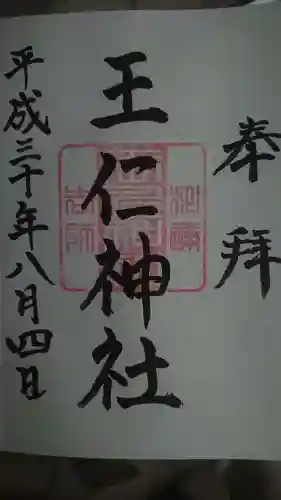 奉拝
王仁神社
平成三十年八月四日